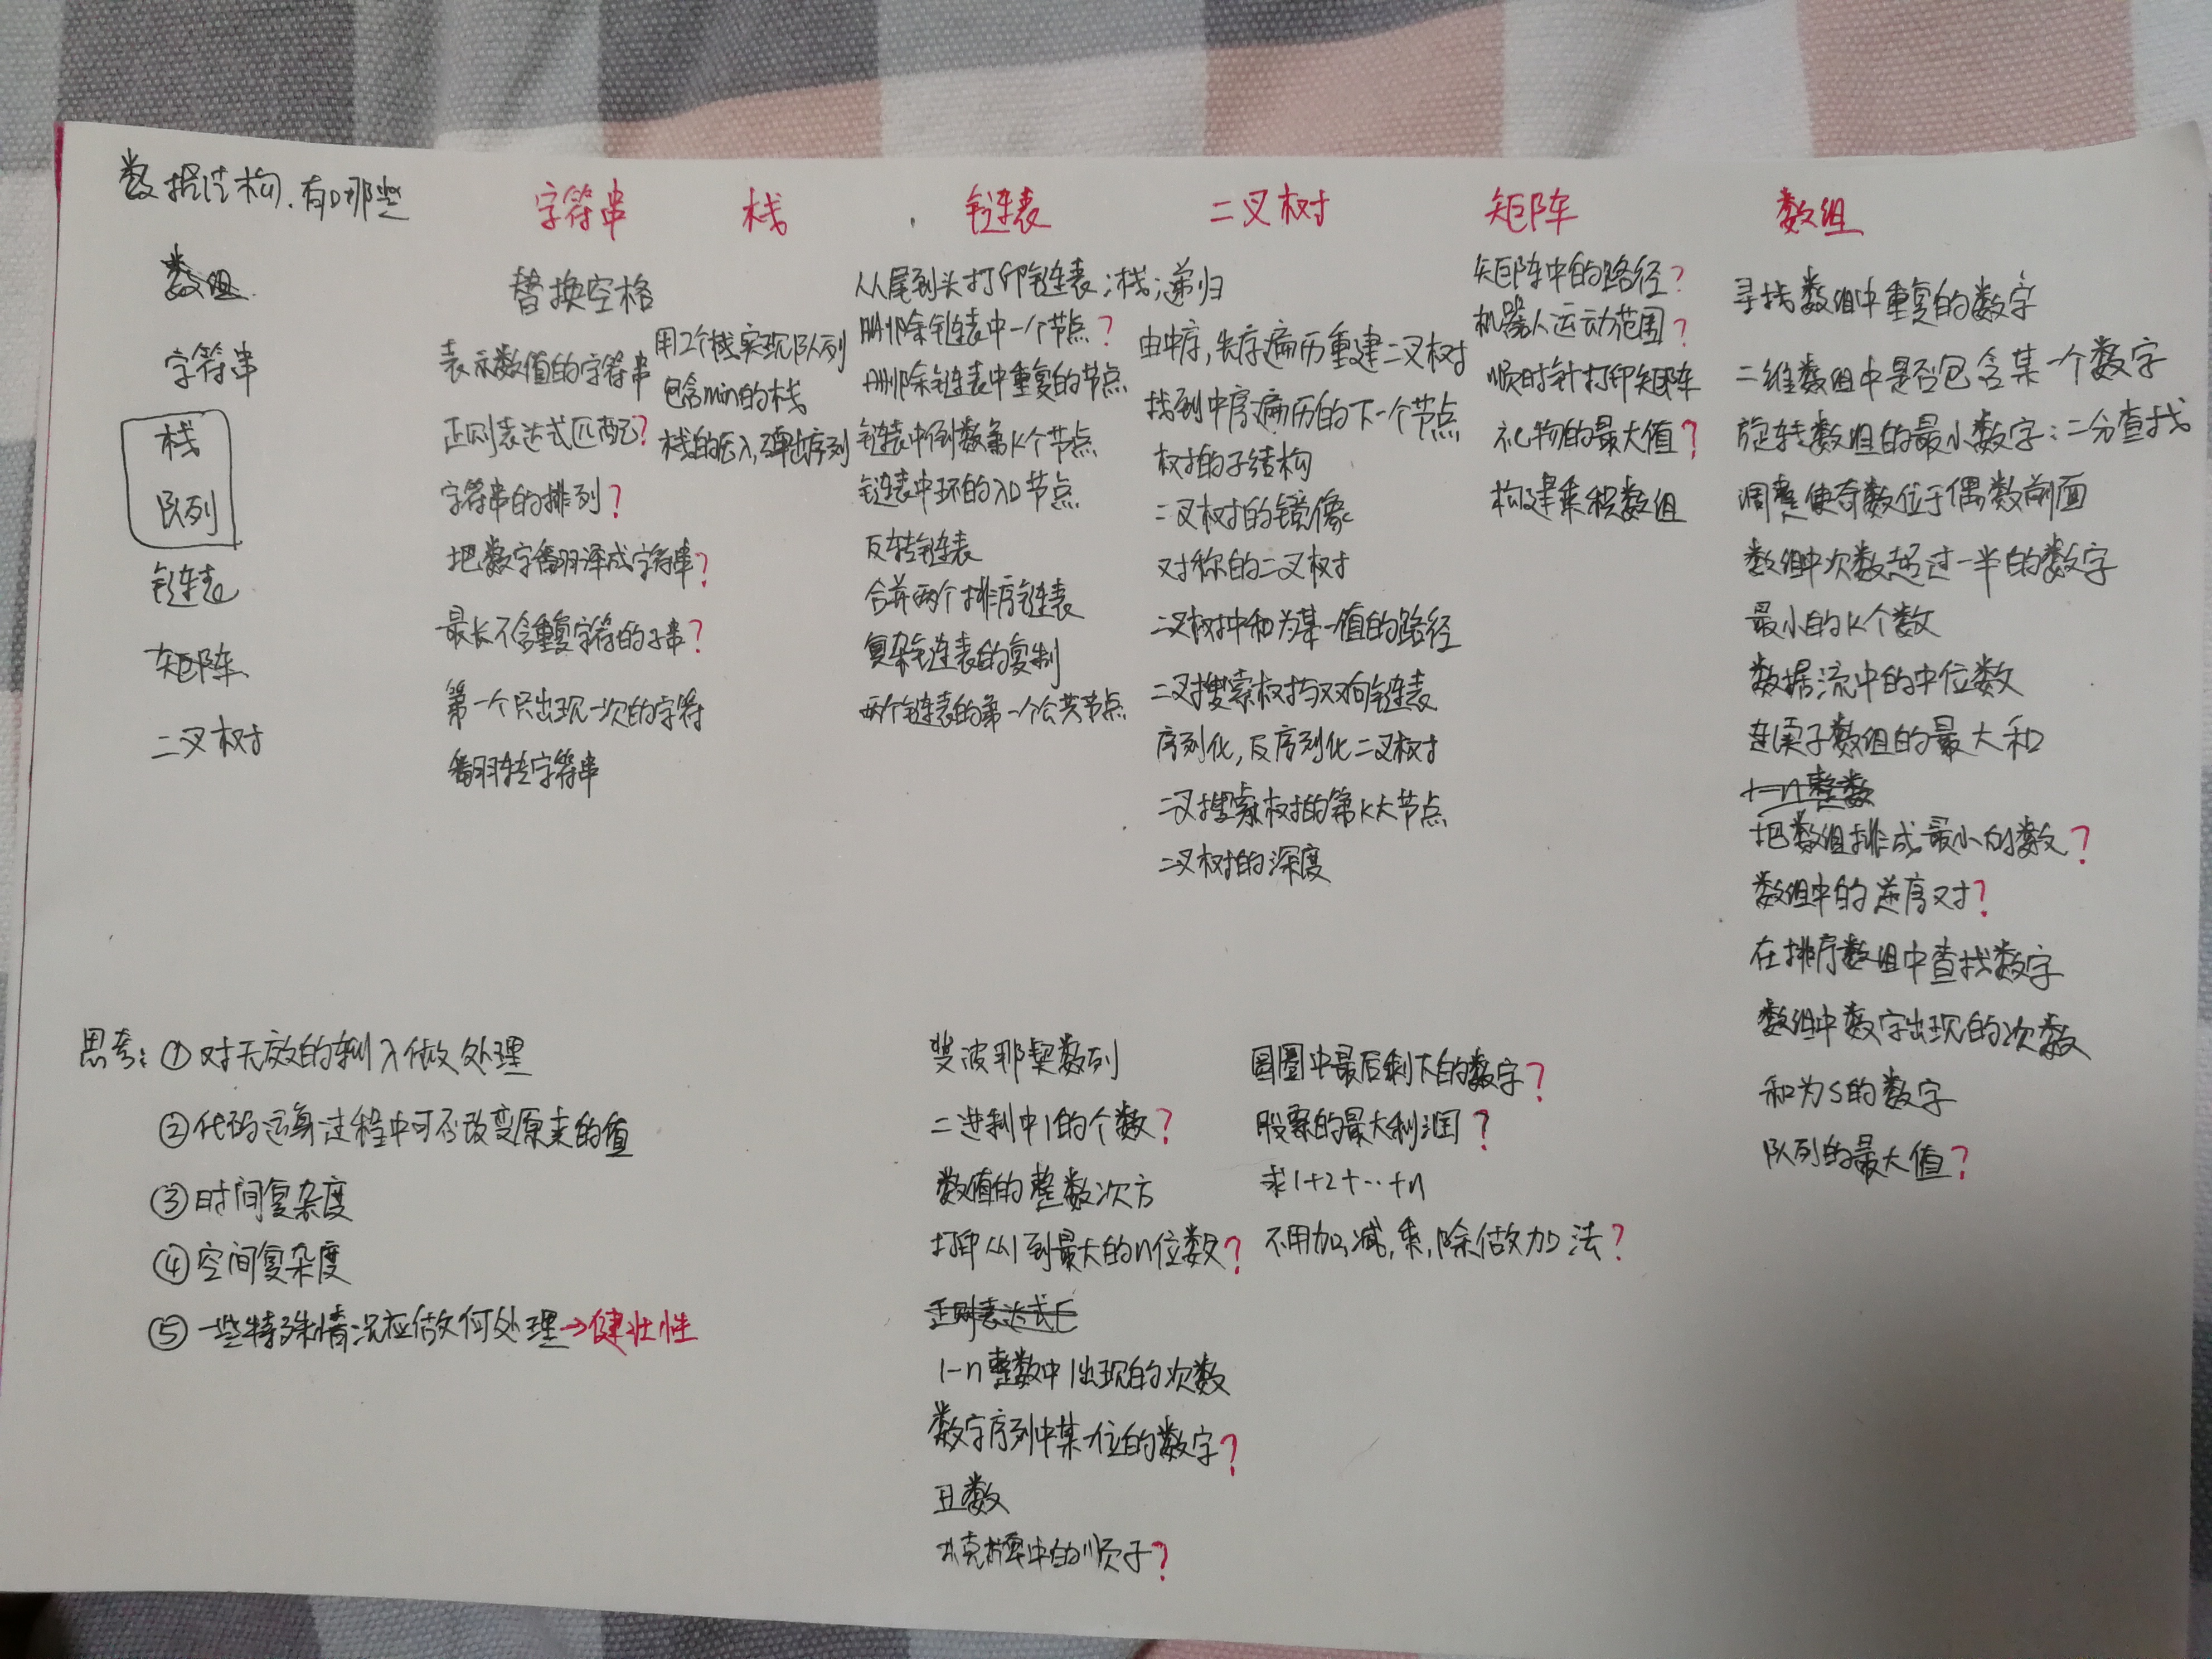 数据结构.有哪些
数组
字符串
栈
队列
链表
矩阵
二叉树
字符串
替换空格
表示数值的字符串
正则表达式匹配?
字符串的排列?
把数字翻译成字符串?
最长不含重复字符的子串?
第一个只出现一次的字符
翻转字符串
栈
用2个栈实现队列
包含min的栈
栈的压入,弹出序列
链表
从尾到头打印链表;栈;递归
删除链表中一个节点?
删除链表中重复的节点
链表中倒数第K个节点
链表中环的入口节点
反转链表
合并两个排序链表
复杂链表的复制
两个链表的第一个公共节点
二叉树
由中序,先序遍历重建二叉树
找到中序遍历的下一个节点
树的子结构
二叉树的镜像
对称的二叉树
二叉树中和为某一值的路径
二叉搜索树与双向链表
序列化,反序列化二叉树
二叉搜索树的第K大节点
二叉树的深度
矩阵
矩阵中的路径?
机器人运动范围?
顺时针打印矩阵
礼物的最大值?
构建乘积数组
数组
寻找数组中重复的数字
二维数组中是否包含某一个数字
旋转数组的最小数字:二分查找
调整使奇数位于偶数前面
数组中次数超过一半的数字
最小的K个数
数据流中的中位数
连续子数组的最大和
1-n整数
把数组排成最小的数?
数组中的逆序对?
在排序数组中查找数字
数组中数字出现的次数
和为S的数字
队列的最大值?
思考:①对无效的输入做处理
②代码运算过程中可否改变原来的值
③时间复杂度
④空间复杂度
⑤一些特殊情况应做何处理→健壮性
斐波那契数列
二进制中1的个数?
数值的整数次方
打印从1到最大的n位数?
正则表达式
1-n整数中1出现的次数
数字序列中某一位的数字?
丑数
扑克牌中的顺子?
圆圈中最后剩下的数字?
股票的最大利润?
求1+2+…+n
不用加,减,乘,除做加法?